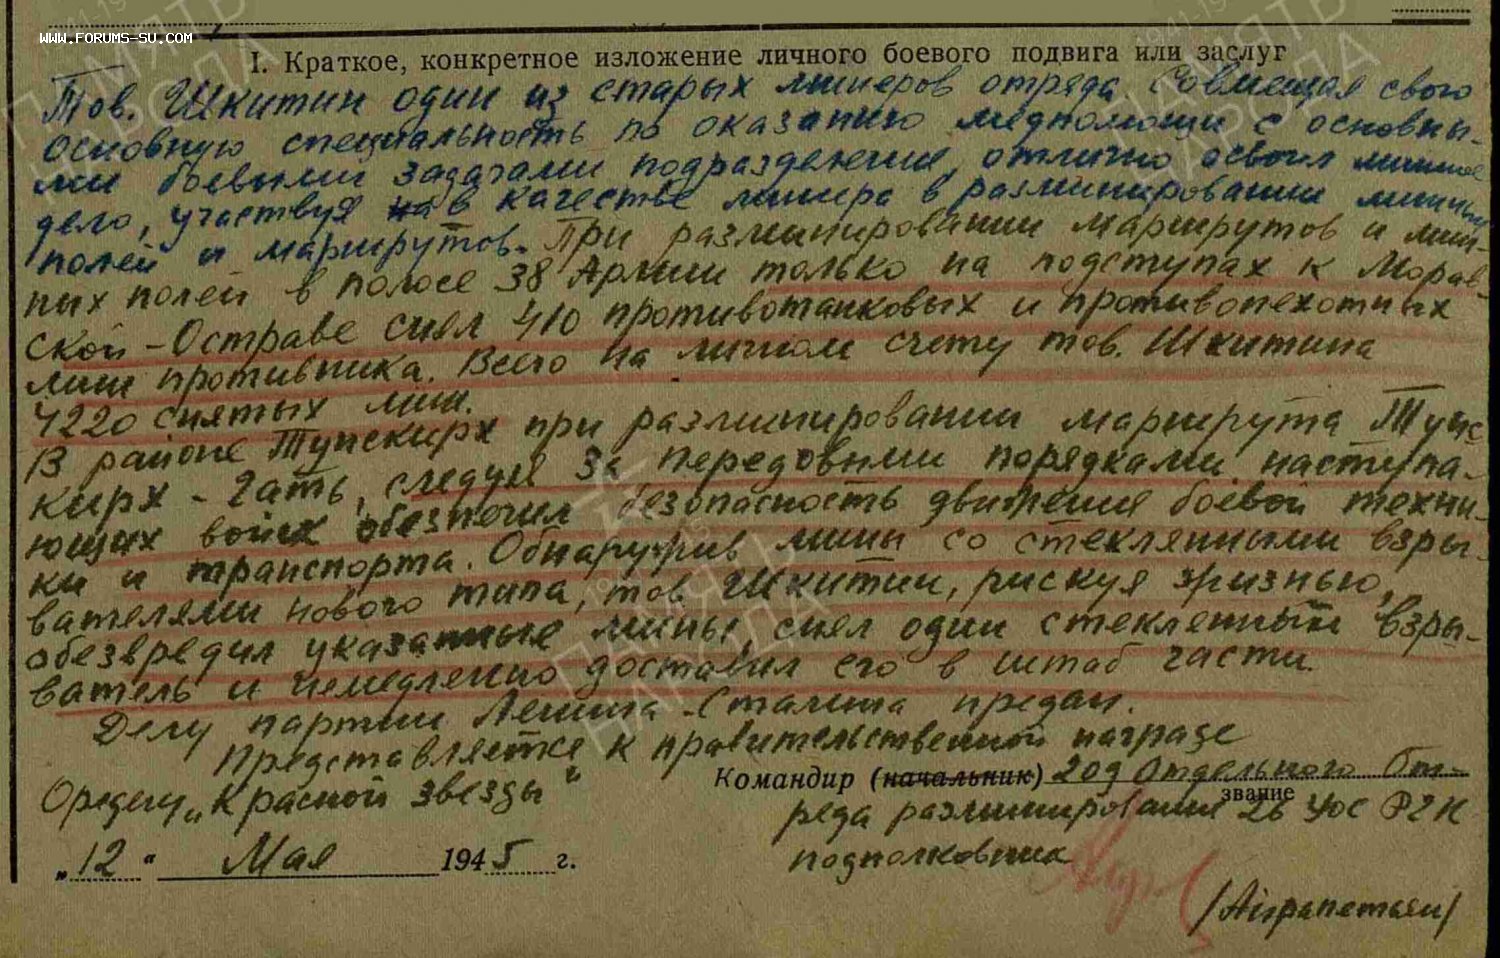 WWW.FORUMS-SU.COM
I. Краткое, конкретное изложение личного боевого подвига или заслуг
Тов. Шкитин один из старых минеров отряда. Совмещая свою
основную специальность по оказанию медпомощи с основны-
ми боевыми задачами подразделения, отлично освоил минное
дело, участвуя в качестве минера в разминировании минных
полей и маршрутов. При разминировании маршрутов и мин-
ных полей в полосе 38 Армии только на подступах к Морав-
ской-Остраве снял 410 противотанковых и противопехотных
мин противника. Всего на личном счету тов. Шкитина
4220 снятых мин.
В районе Тунскирх при разминировании маршрута Тунс-
кирх - Гать, следуя за передовыми порядками наступа-
ющих войск обеспечил безопасность движения боевой техни-
ки и транспорта. Обнаружив мины со стеклянными взры-
вателями нового типа, тов Шкитин, рискуя жизнью,
обезвредил указанные мины, снял один стеклянный взры-
ватель и немедленно доставил его в штаб части.
Делу партии Ленина-Сталина предан.
Представляется к правительственной награде
Ордену „Красной звезды"
Командир (начальник) 20д Отдельного От-
звание
ряда разминирования 26 УОС РГК
подполковник
„12" Мая 1945 г.
/Айрапетьян/